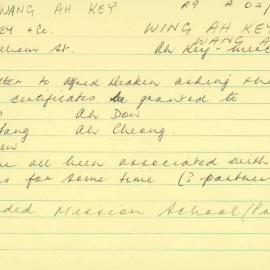 WANG AH KEY A9 A 02/
EY & Co. WING AH KEY
William St. WANG A
Ah Key - merc
tter to Alfred Deakin asking tha
certificates be granted to
Ah Dow
ang Ah Cheong.
en
e all been associated with
s for some time (? partner
ded Mission School (Pa